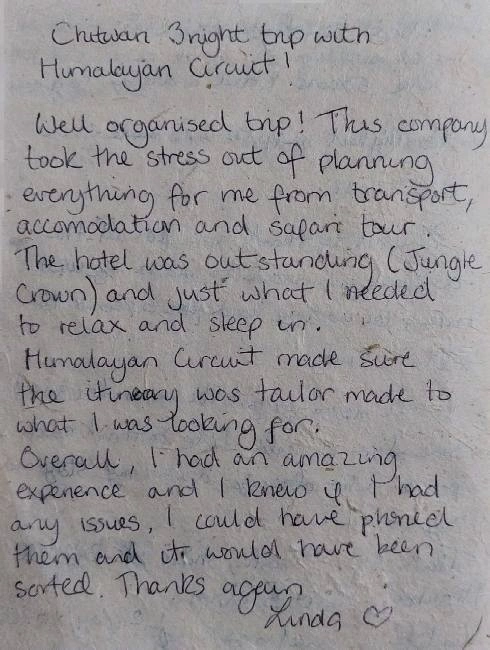 Chitwan 3night trip with
Humalayan Circuit!
Well organised trip! This company
took the stress out of planning
everything for me from transport,
accomodation and safari tour.
The hotel was outstanding (Jungle
Crown) and just what I needed
to relax and sleep in.
Humalayan Circuit made sure
the itineary was tailor made to
what I was looking for.
Overall, I had an amazing
experience and I knew if I had
any issues, I could have phoned
them and it would have been
sorted. Thanks again
Linda ♡